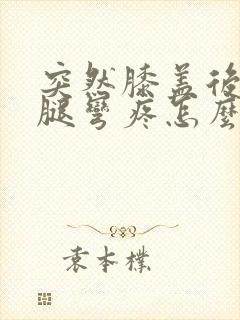 突然膝盖後
腿彎疼怎麼
袁本樸